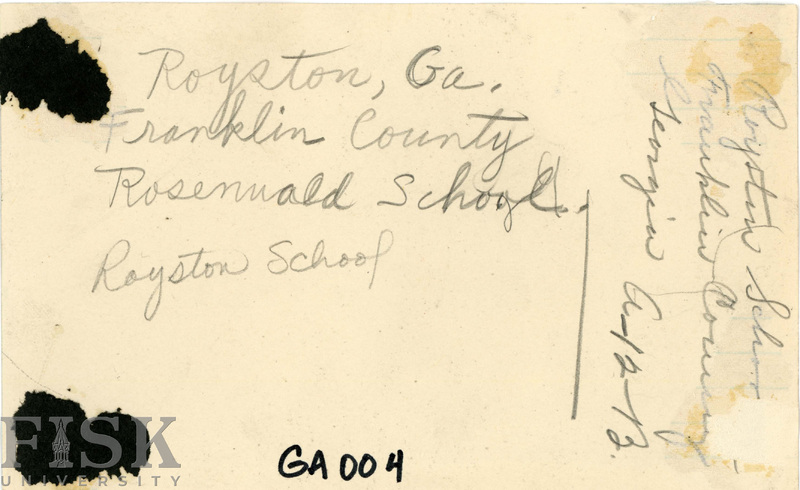 Royston, Ga.
Franklin County
Rosenwald School.
Royston School
Royston Scho
Franklin County
Georgia A-12-B.
GA 004
FISK
UNIVERSITY